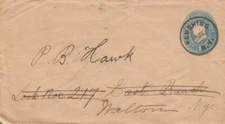 P. B. Hawk
Lock Box 217 East Branch
Walton N.Y.